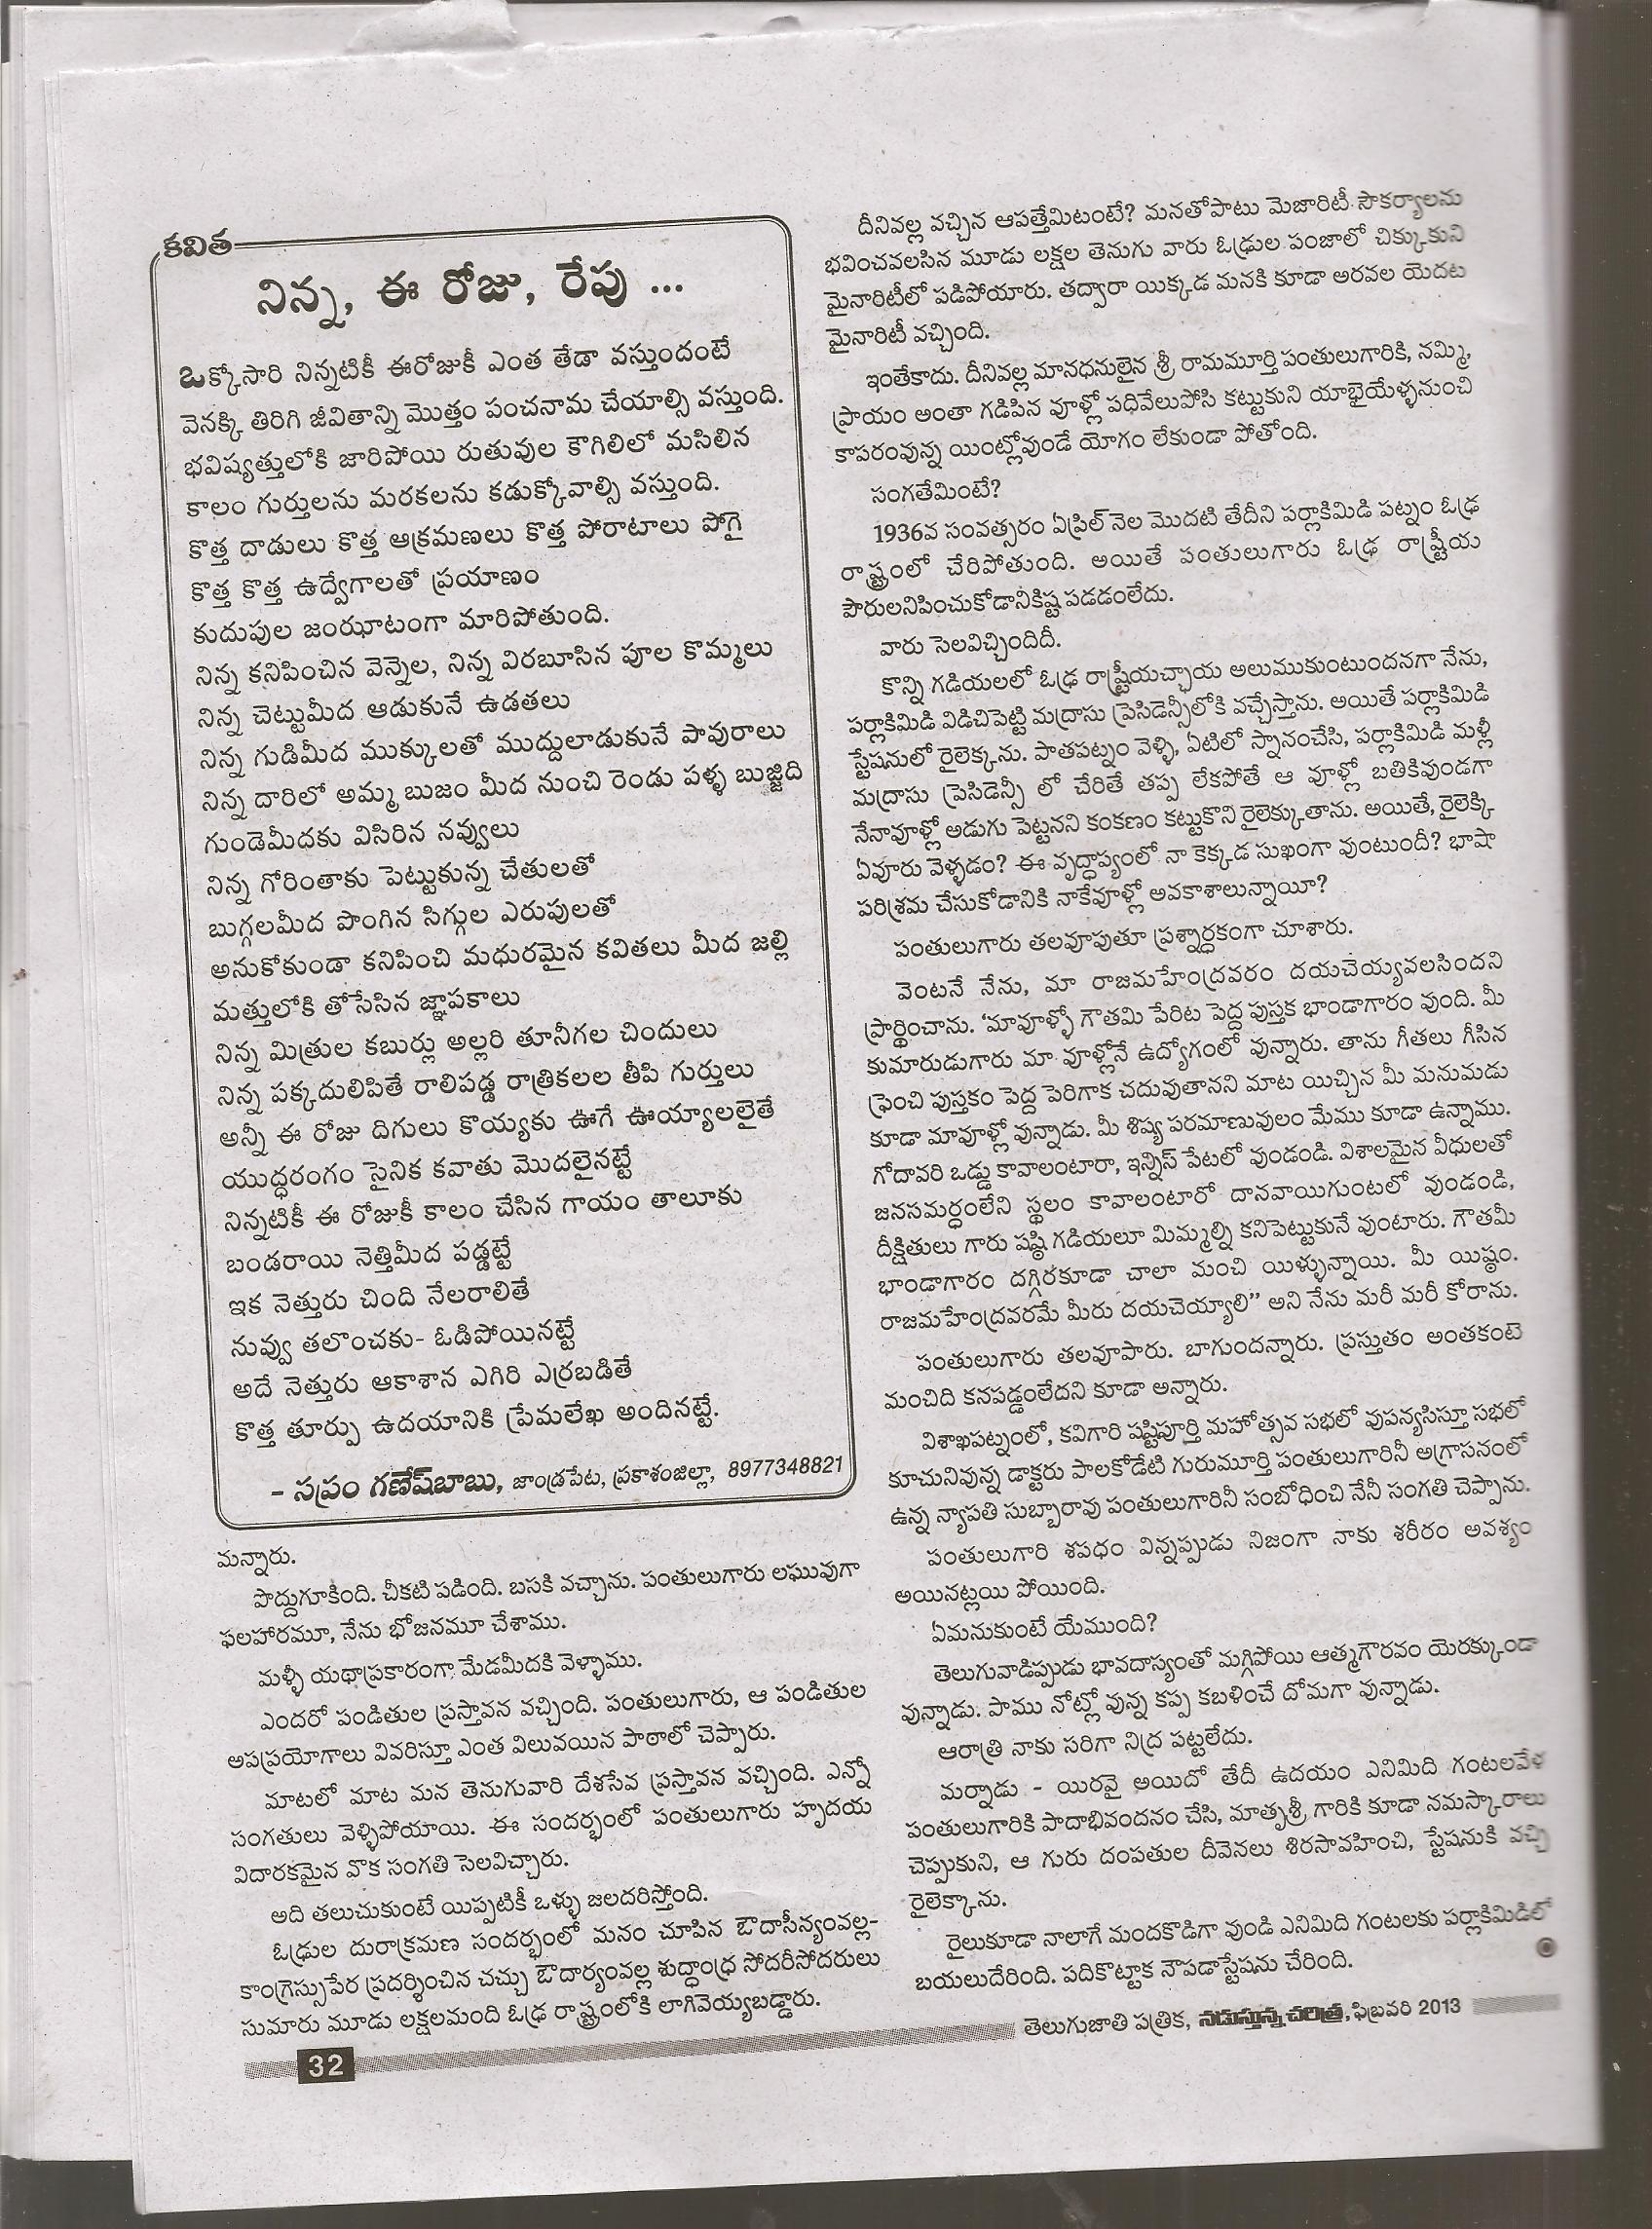 కవిత
నిన్న, ఈ రోజు, రేపు ...
ఒక్కోసారి నిన్నటికీ ఈరోజుకీ ఎంత తేడా వస్తుందంటే
వెనక్కి తిరిగి జీవితాన్ని మొత్తం పంచనామ చేయాల్సి వస్తుంది.
భవిష్యత్తులోకి జారిపోయి రుతువుల కౌగిలిలో మసిలిన
కాలం గుర్తులను మరకలను కడుక్కోవాల్సి వస్తుంది.
కొత్త దాడులు కొత్త ఆక్రమణలు కొత్త పోరాటాలు పోగై
కొత్త కొత్త ఉద్వేగాలతో ప్రయాణం
కుదుపుల జంఝాటంగా మారిపోతుంది.
నిన్న కనిపించిన వెన్నెల, నిన్న విరబూసిన పూల కొమ్మలు
నిన్న చెట్టుమీద ఆడుకునే ఉడతలు
నిన్న గుడిమీద ముక్కులతో ముద్దులాడుకునే పావురాలు
నిన్న దారిలో అమ్మ బుజం మీద నుంచి రెండు పళ్ళ బుజ్జిది
గుండెమీదకు విసిరిన నవ్వులు
నిన్న గోరింతాకు పెట్టుకున్న చేతులతో
బుగ్గలమీద పొంగిన సిగ్గుల ఎరుపులతో
అనుకోకుండా కనిపించి మధురమైన కవితలు మీద జల్లి
మత్తులోకి తోసేసిన జ్ఞాపకాలు
నిన్న మిత్రుల కబుర్లు అల్లరి తూనీగల చిందులు
నిన్న పక్కదులిపితే రాలిపడ్డ రాత్రికలల తీపి గుర్తులు
అన్నీ ఈ రోజు దిగులు కొయ్యకు ఊగే ఊయ్యాలలైతే
యుద్ధరంగం సైనిక కవాతు మొదలైనట్టే
నిన్నటికీ ఈ రోజుకీ కాలం చేసిన గాయం తాలూకు
బండరాయి నెత్తిమీద పడ్డట్టే
ఇక నెత్తురు చింది నేలరాలితే
నువ్వు తలొంచకు- ఓడిపోయినట్టే
అదే నెత్తురు ఆకాశాన ఎగిరి ఎర్రబడితే
కొత్త తూర్పు ఉదయానికి ప్రేమలేఖ అందినట్టే.
- సప్రం గణేష్‌బాబు, జాండ్రపేట, ప్రకాశంజిల్లా, 8977348821
మన్నారు.
పొద్దుగూకింది. చీకటి పడింది. బసకి వచ్చాను. పంతులుగారు లఘువుగా
ఫలహారమూ, నేను భోజనమూ చేశాము.
మళ్ళీ యథాప్రకారంగా మేడమీదకి వెళ్ళాము.
ఎందరో పండితుల ప్రస్తావన వచ్చింది. పంతులుగారు, ఆ పండితుల
అపప్రయోగాలు వివరిస్తూ ఎంత విలువయిన పాఠాలో చెప్పారు.
మాటలో మాట మన తెనుగువారి దేశసేవ ప్రస్తావన వచ్చింది. ఎన్నో
సంగతులు వెళ్ళిపోయాయి. ఈ సందర్భంలో పంతులుగారు హృదయ
విదారకమైన వొక సంగతి సెలవిచ్చారు.
అది తలుచుకుంటే యిప్పటికీ ఒళ్ళు జలదరిస్తోంది.
ఓఢ్రుల దురాక్రమణ సందర్భంలో మనం చూపిన ఔదాసీన్యంవల్ల-
కాంగ్రెస్సుపేర ప్రదర్శించిన చచ్చు ఔదార్యంవల్ల శుద్ధాంధ్ర సోదరీసోదరులు
సుమారు మూడు లక్షలమంది ఓఢ్ర రాష్ట్రంలోకి లాగివెయ్యబడ్డారు.
దీనివల్ల వచ్చిన ఆపత్తేమిటంటే? మనతోపాటు మెజారిటీ సౌకర్యాలను
భవించవలసిన మూడు లక్షల తెనుగు వారు ఓఢ్రుల పంజాలో చిక్కుకుని
మైనారిటీలో పడిపోయారు. తద్వారా యిక్కడ మనకి కూడా అరవల యెదట
మైనారిటీ వచ్చింది.
ఇంతేకాదు. దీనివల్ల మానధనులైన శ్రీ రామమూర్తి పంతులుగారికి, నమ్మి,
ప్రాయం అంతా గడిపిన వూళ్లో పధివేలుపోసి కట్టుకుని యాభైయేళ్ళనుంచి
కాపరంవున్న యింట్లోవుండే యోగం లేకుండా పోతోంది.
సంగతేమింటే?
1936వ సంవత్సరం ఏప్రిల్ నెల మొదటి తేదీని పర్లాకిమిడి పట్నం ఓఢ్ర
రాష్ట్రంలో చేరిపోతుంది. అయితే పంతులుగారు ఓఢ్ర రాష్ట్రీయ
పౌరులనిపించుకోడానికిష్ట పడడంలేదు.
వారు సెలవిచ్చిందిదీ.
కొన్ని గడియలలో ఓఢ్ర రాష్ట్రీయచ్ఛాయ అలుముకుంటుందనగా నేను,
పర్లాకిమిడి విడిచిపెట్టి మద్రాసు ప్రెసిడెన్సీలోకి వచ్చేస్తాను. అయితే పర్లాకిమిడి
స్టేషనులో రైలెక్కను. పాతపట్నం వెళ్ళి, ఏటిలో స్నానంచేసి, పర్లాకిమిడి మళ్లీ
మద్రాసు ప్రెసిడెన్సీ లో చేరితే తప్ప లేకపోతే ఆ వూళ్లో బతికివుండగా
నేనావూళ్లో అడుగు పెట్టనని కంకణం కట్టుకొని రైలెక్కుతాను. అయితే, రైలెక్కి
ఏవూరు వెళ్ళడం? ఈ వృద్ధాప్యంలో నా కెక్కడ సుఖంగా వుంటుందీ? భాషా
పరిశ్రమ చేసుకోడానికి నాకేవూళ్లో అవకాశాలున్నాయీ?
పంతులుగారు తలవూపుతూ ప్రశ్నార్ధకంగా చూశారు.
వెంటనే నేను, మా రాజమహేంద్రవరం దయచెయ్యవలసిందని
ప్రార్థించాను. 'మావూళ్ళో గౌతమి పేరిట పెద్ద పుస్తక భాండాగారం వుంది. మీ
కుమారుడుగారు మా వూళ్లోనే ఉద్యోగంలో వున్నారు. తాను గీతలు గీసిన
ఫ్రెంచి పుస్తకం పెద్ద పెరిగాక చదువుతానని మాట యిచ్చిన మీ మనుమడు
కూడా మావూళ్లో వున్నాడు. మీ శిష్య పరమాణువులం మేము కూడా ఉన్నాము.
గోదావరి ఒడ్డు కావాలంటారా, ఇన్నిస్ పేటలో వుండండి. విశాలమైన వీధులతో
జనసమర్ధంలేని స్థలం కావాలంటారో దానవాయిగుంటలో వుండండి,
దీక్షితులు గారు షష్ఠి గడియలూ మిమ్మల్ని కనిపెట్టుకునే వుంటారు. గౌతమీ
భాండాగారం దగ్గిరకూడా చాలా మంచి యిళ్ళున్నాయి. మీ యిష్ఠం.
రాజమహేంద్రవరమే మీరు దయచెయ్యాలి" అని నేను మరీ మరీ కోరాను.
పంతులుగారు తలవూపారు. బాగుందన్నారు. ప్రస్తుతం అంతకంటె
మంచిది కనపడ్డంలేదని కూడా అన్నారు.
విశాఖపట్నంలో, కవిగారి షష్టిపూర్తి మహోత్సవ సభలో వుపన్యసిస్తూ సభలో
కూచునివున్న డాక్టరు పాలకోడేటి గురుమూర్తి పంతులుగారినీ అగ్రాసనంలో
ఉన్న న్యాపతి సుబ్బారావు పంతులుగారినీ సంబోధించి నేనీ సంగతి చెప్పాను.
పంతులుగారి శపధం విన్నప్పుడు నిజంగా నాకు శరీరం అవశ్యం
అయినట్లయి పోయింది.
ఏమనుకుంటే యేముంది?
తెలుగువాడిప్పుడు భావదాస్యంతో మగ్గిపోయి ఆత్మగౌరవం యెరక్కుండా
వున్నాడు. పాము నోట్లో వున్న కప్ప కబళించే దోమగా వున్నాడు.
ఆరాత్రి నాకు సరిగా నిద్ర పట్టలేదు.
మర్నాడు - యిరవై అయిదో తేదీ ఉదయం ఎనిమిది గంటలవేళ
పంతులుగారికి పాదాభివందనం చేసి, మాతృశ్రీ గారికి కూడా నమస్కారాలు
చెప్పుకుని, ఆ గురు దంపతుల దీవెనలు శిరసావహించి, స్టేషనుకి వచ్చి
రైలెక్కాను.
రైలుకూడా నాలాగే మందకొడిగా వుండి ఎనిమిది గంటలకు పర్లాకిమిడిలో
బయలుదేరింది. పదికొట్టాక నౌపడాస్టేషను చేరింది.
తెలుగుజాతి పత్రిక, నడుస్తున్న చరిత్ర, ఫిబ్రవరి 2013
32